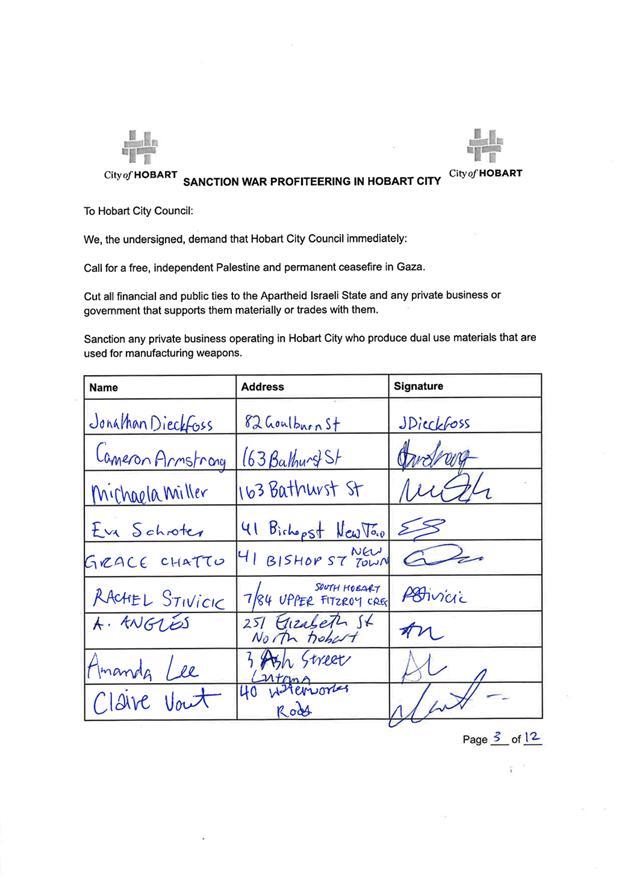 City of HOBART
City of HOBART
SANCTION WAR PROFITEERING IN HOBART CITY
To Hobart City Council:
We, the undersigned, demand that Hobart City Council immediately:
Call for a free, independent Palestine and permanent ceasefire in Gaza.
Cut all financial and public ties to the Apartheid Israeli State and any private business or
government that supports them materially or trades with them.
Sanction any private business operating in Hobart City who produce dual use materials that are
used for manufacturing weapons.
Name Address Signature
Jonathan Dieckfoss 82 Goulburn St JDieckfoss
Cameron Armstrong 163 Bathurst St
Michaela Miller 163 Bathurst St
Eva Schroter 41 Bishop st New Town ES
GRACE CHATTO 41 BISHOP ST NEW TOWN
RACHEL STIVICIC 7/84 UPPER FITZROY CRES SOUTH HOBART
A. ANGLÉS 251 Elizabeth St
North hobart
Amanda Lee 3 Ash Street AL
Lutana
Claire Vout 40 Waterworks
Road
Page 3 of 12